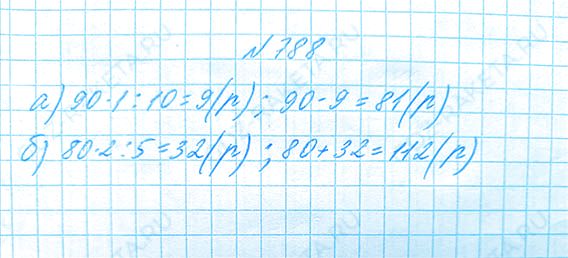 №788
а) 90·1:10=9(р); 90-9=81(р)
б) 80·2:5=32(р); 80+32=112(р)